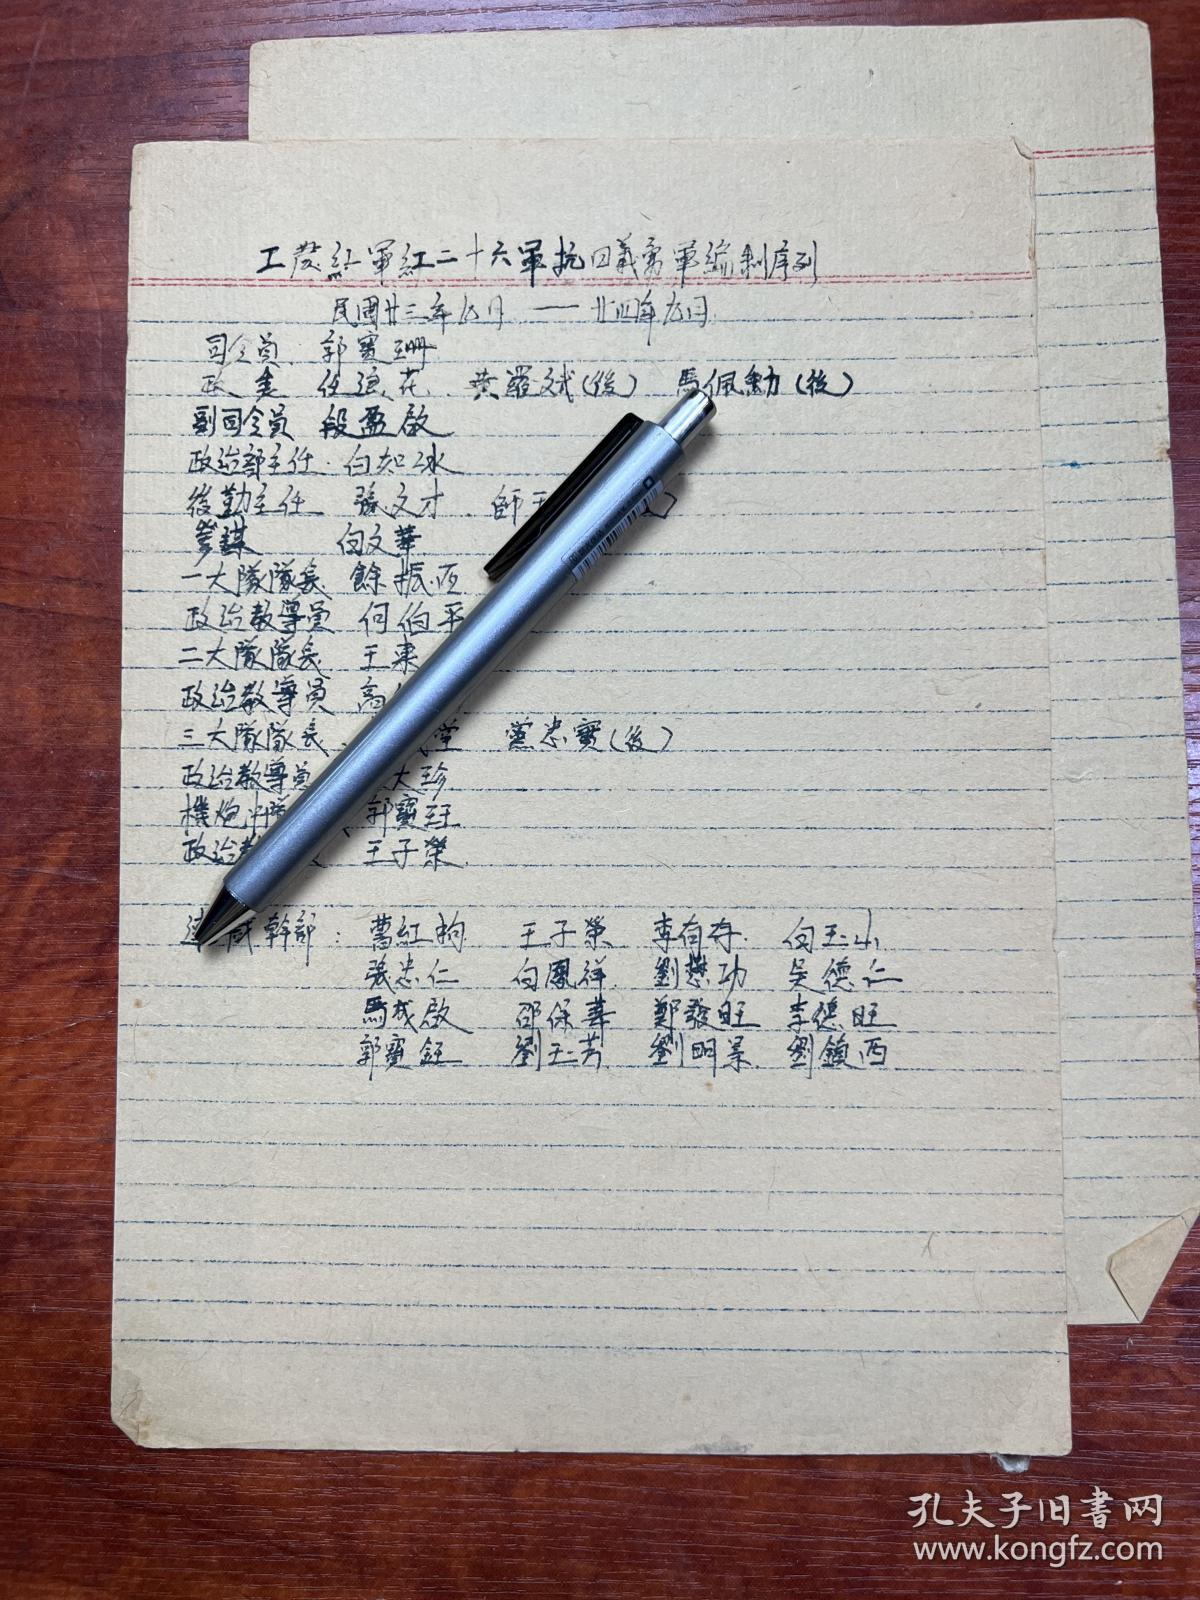 工農紅軍紅二十六軍抗日義勇軍編制序列
民國廿三年九月 — 廿四年九月
司令員 郭寶珊
政委 任浪花 黄羅斌(後) 馬佩勳(後)
副司令員 段盈啟
政治部主任 白如冰
後勤主任 張文才 師玉
參謀 白文華
一大隊隊長 餘振西
政治教導員 何伯平
二大隊隊長 王東
政治教導員 高
三大隊隊長 堂 黨忠實(後)
政治教導員 大珍
機炮中隊 郭寶珏
政治教 王子榮
連 幹部: 曹紅 王子榮 李有存 白玉山
張忠仁 白鳳祥 劉懋功 吴德仁
馬成啟 邵保華 鄭發旺 李德旺
郭寶鈺 劉玉芳 劉明景 劉鎮西
孔夫子旧书网
www.kongfz.com